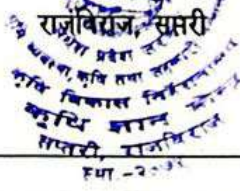 राजविराज, सप्तरी
प्रदेश
कृषि तथा सहकारी
कृषि विकास निर्देशनालय
कृषि ज्ञान केन्द्र
सप्तरी, राजविराज